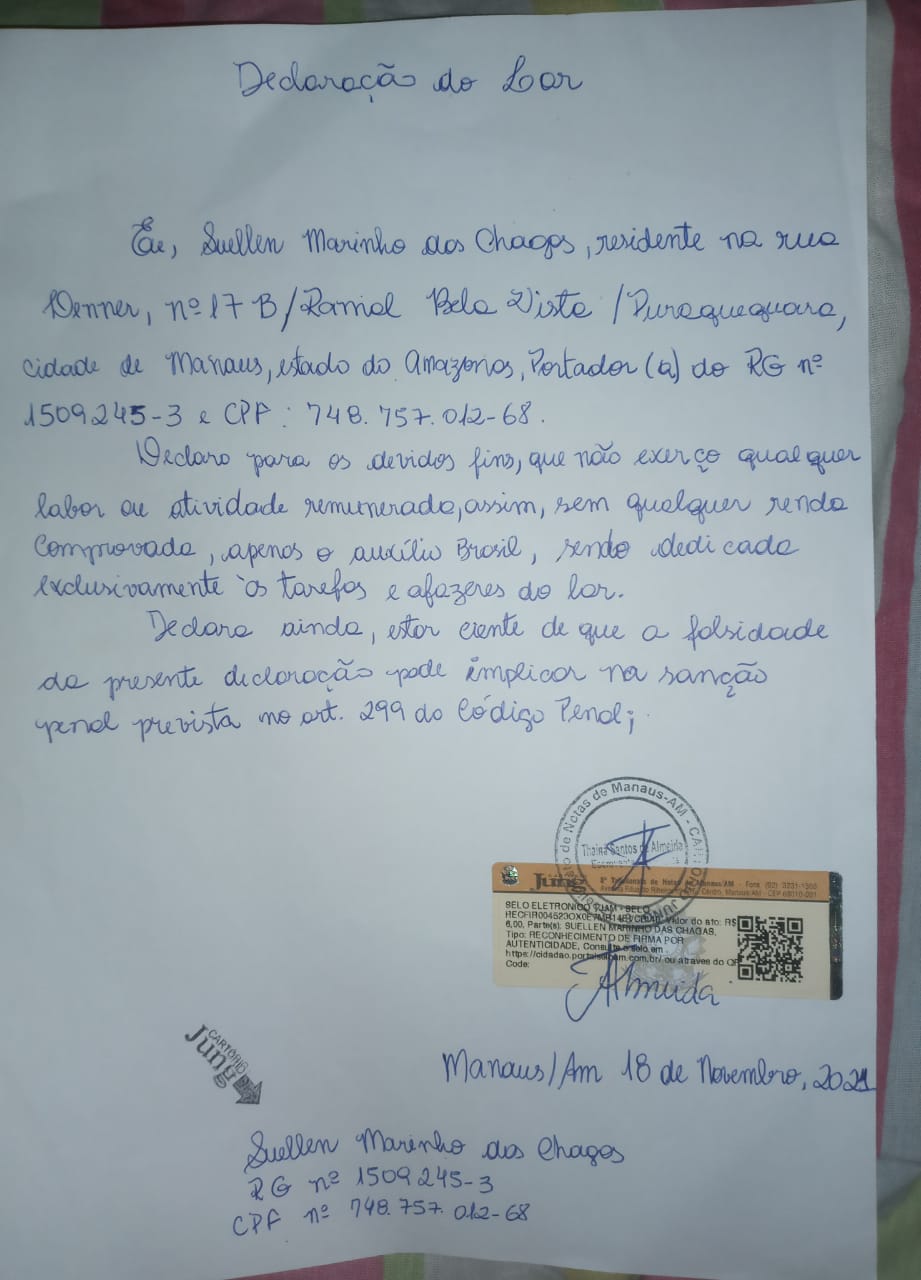 Declaração do Lar
Eu, Suellen Marinho das Chagas, residente na rua
Denner, nº 17 B/Ramal Bela Vista /Puraquequara,
cidade de Manaus, estado do Amazonas, Portador (a) do RG nº
1509245-3 e CPF: 748.757.012-68.
Declaro para os devidos fins, que não exerço qualquer
labor ou atividade remunerada, assim, sem qualquer renda
comprovada, apenas o auxílio Brasil, sendo dedicada
exclusivamente às tarefas e afazeres do lar.
Declara ainda, estar ciente de que a falsidade
da presente declaração pode implicar na sanção
penal prevista no art. 299 do Código Penal;
de Notas de Manaus-AM - CARTÓRIO
Thainá Santos de Almeida
Jung
8º Tabelionato de Notas de Manaus/AM - Fone (92) 3231-
Centro, Manaus-AM - CEP
SELO ELETRONICO TJAM - SELO
Valor do ato: R$
6,00, Parte(s): SUELLEN MARINHO DAS CHAGAS,
Tipo: RECONHECIMENTO DE FIRMA POR
AUTENTICIDADE, Consulte o selo em
https://cidadao.portalseloam.com.br/ ou atraves do QR
Code:
Almeida
CARTÓRIO
Jung
Manaus/Am 18 de Novembro, 2021
Suellen Marinho das Chagas
RG nº 1509245-3
CPF nº 748.757.012-68